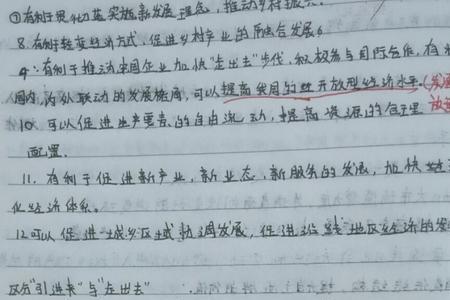 ⑦有利于更好地实施新发展理念，推动乡村振
8.有利于转变经济方式，促进乡村产业的融合发展。
9：有利于推动本国企业加快“走出去”步伐，积极参与国际合作，在
国内、外联动的发展格局，可以提高我国的开放型经济水平.（发展
10 可以促进生产要素的自由流动，提高资源的合理 放
配置。
11. 有利于促进新产业，新业态，新服务的发展，加快
化经济体系。
12可以促进城乡区域协调发展，促进沿线地区经济的发
区分“引进来”与“走出去”